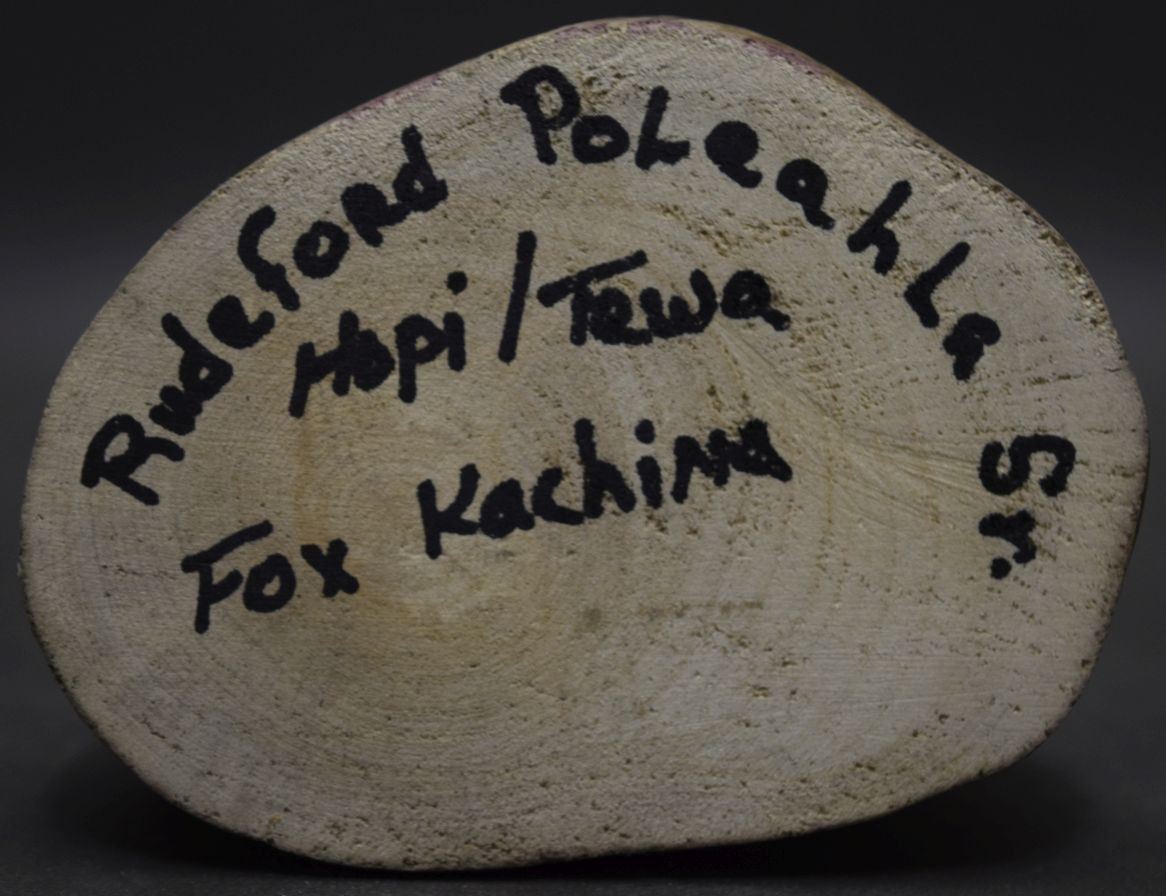 Rudeford PoLeahLa Sr.
Hopi/Tewa
Fox Kachina